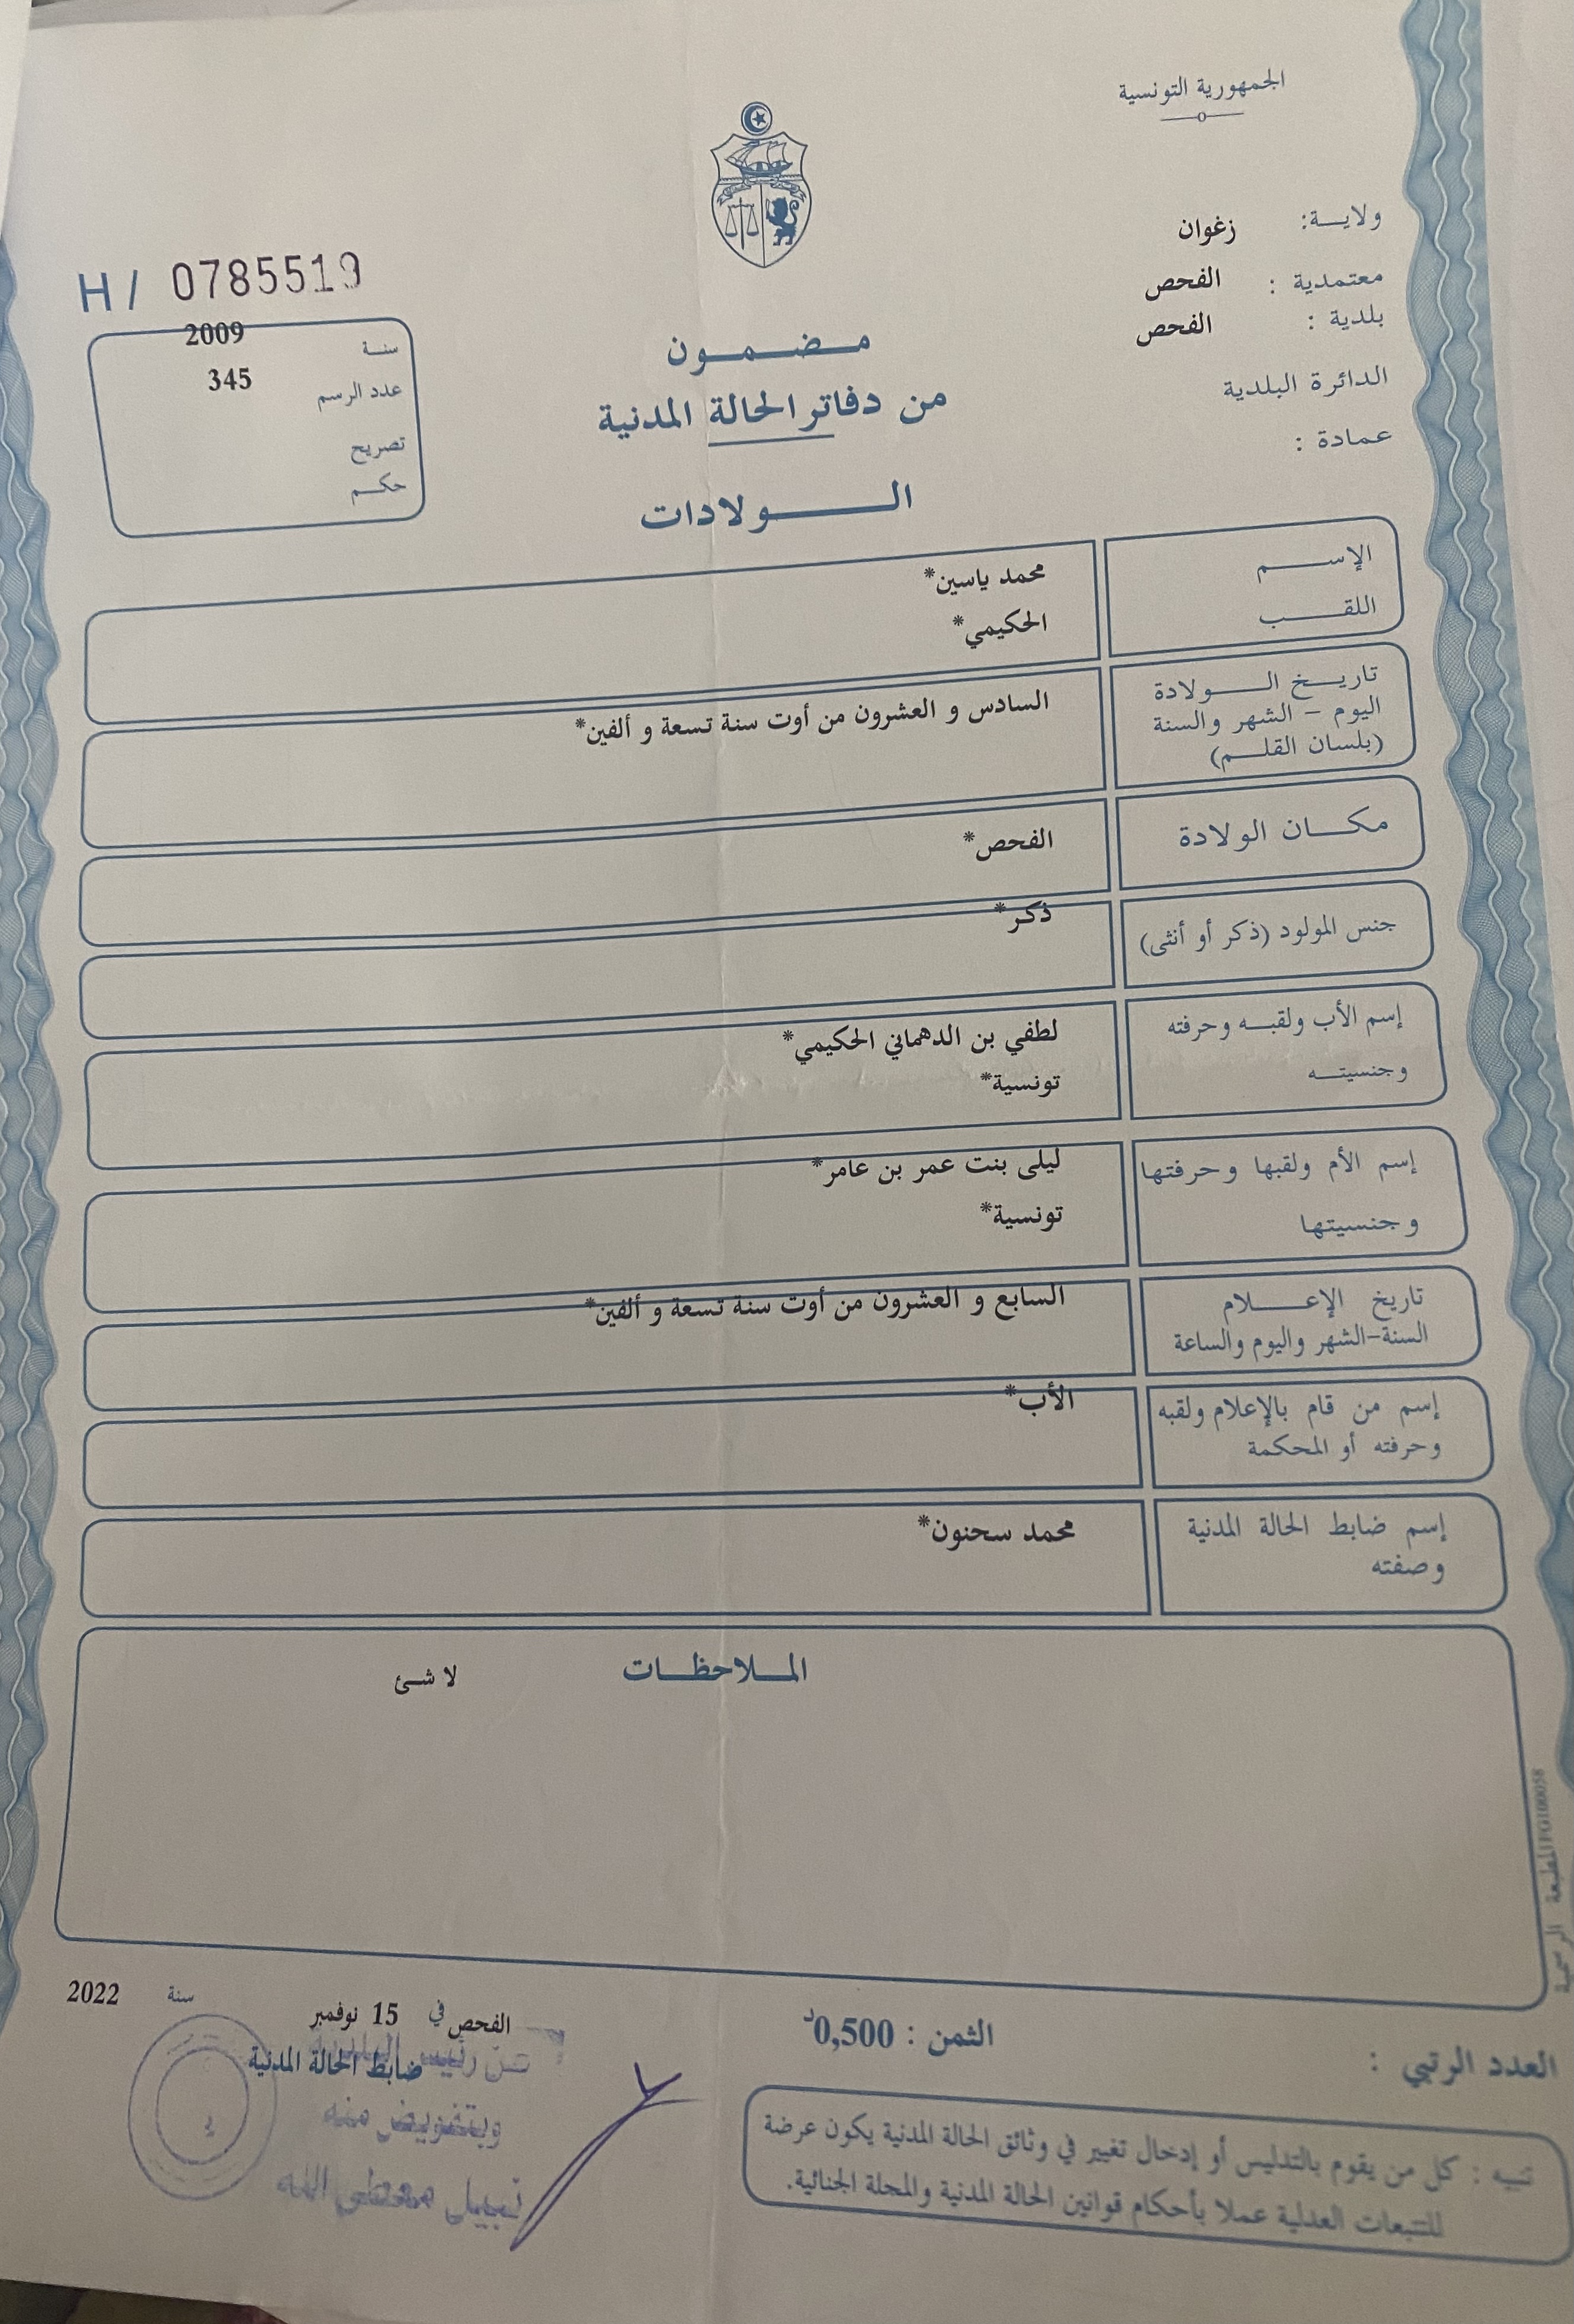 الجمهورية التونسية
ولاية: زغوان
معتمدية : الفحص
بلدية : الفحص
الدائرة البلدية
عمادة :
H/ 0785519
سنة 2009
عدد الرسم 345
تصريح
حكم
مضمون
من دفاتر الحالة المدنية
الولادات
الإسم محمد ياسين*
اللقب الحكيمي*
تاريخ الولادة
اليوم - الشهر والسنة
(بلسان القلم)
السادس و العشرون من أوت سنة تسعة و ألفين*
مكان الولادة الفحص*
جنس المولود (ذكر أو أنثى) ذكر*
إسم الأب ولقبه وحرفته لطفي بن الدهماني الحكيمي*
وجنسيته تونسية*
إسم الأم ولقبها وحرفتها ليلى بنت عمر بن عامر*
وجنسيتها تونسية*
تاريخ الإعلام
السنة-الشهر واليوم والساعة
السابع و العشرون من أوت سنة تسعة و ألفين*
إسم من قام بالإعلام ولقبه الأب*
وحرفته أو المحكمة
إسم ضابط الحالة المدنية محمد سحنون*
وصفته
الملاحظات لا شئ
المطبعة الرسمية
الفحص في 15 نوفمبر سنة 2022
ضابط الحالة المدنية
عن رئيس البلدية
وبتفويض منه
نبيل
الثمن : 0,500د
العدد الرتبي :
تنبيه : كل من يقوم بالتدليس أو إدخال تغيير في وثائق الحالة المدنية يكون عرضة
للتتبعات العدلية عملا بأحكام قوانين الحالة المدنية والمجلة الجنائية.